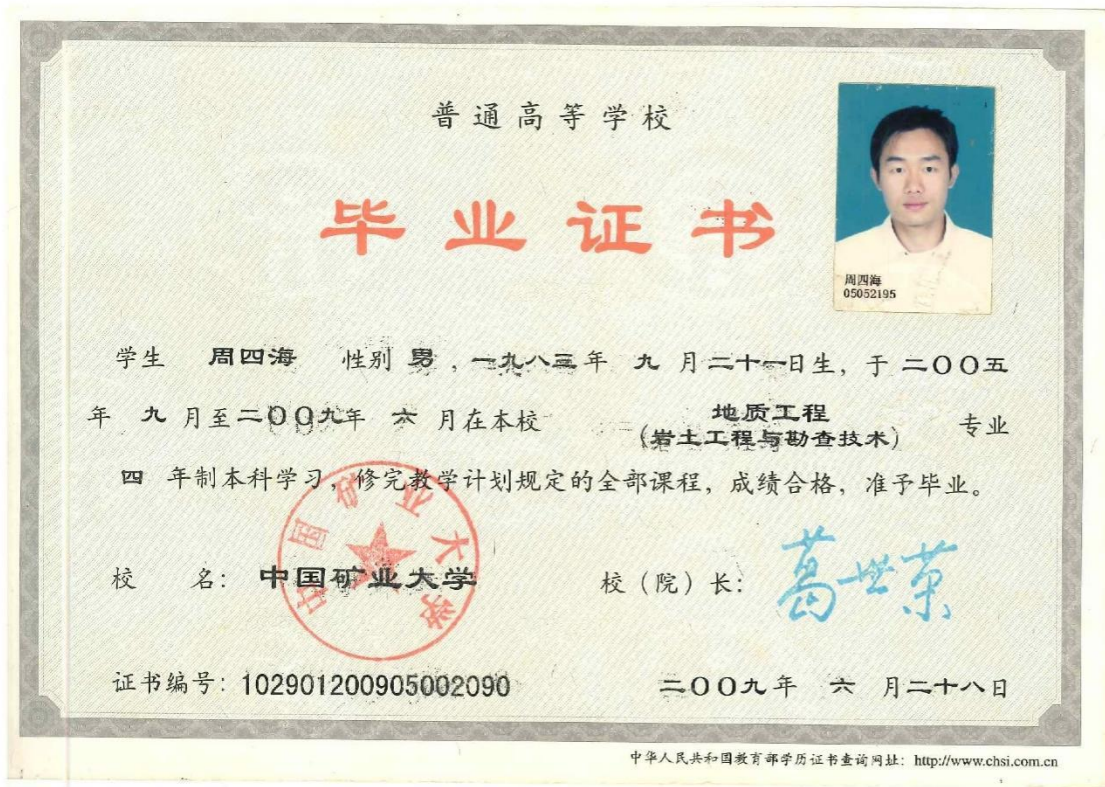 普通高等学校
毕业证书
周四海
05052195
学生 周四海 性别 男，一九八三年 九 月二十一日生，于 二〇〇五
年 九 月至二〇〇九年 六 月在本校 地质工程 专业
（岩土工程与勘查技术）
四 年制本科学习，修完教学计划规定的全部课程，成绩合格，准予毕业。
中国矿业大学
校 名： 中国矿业大学 校（院）长： 葛世荣
证书编号：102901200905002090 二〇〇九年 六 月二十八日
中华人民共和国教育部学历证书查询网址：http://www.chsi.com.cn